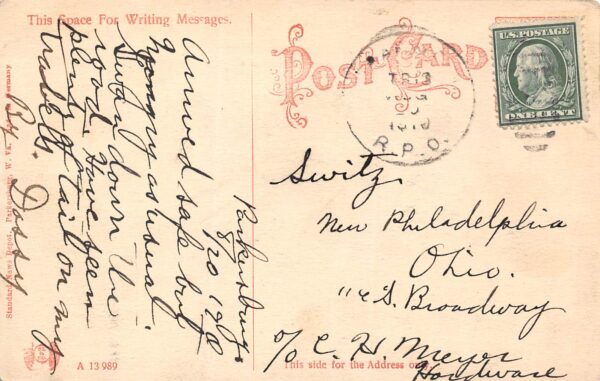 This Space For Writing Messages.
POST CARD
U.S. POSTAGE
ONE CENT
TR 13
AUG
1910
R.P.O.
Parkersburg,
8/20 1910
Arrived safe but
hungry as usual.
Swam down the
road. Have seen
plenty of tail on my
travels.
By. Dossy
Switz,
New Philadelphia
Ohio.
114 S. Broadway
c/o C. H. Meyer
Hardware
This side for the Address
A 13989
Standard News Depot, Parkersburg, W. Va.
Germany